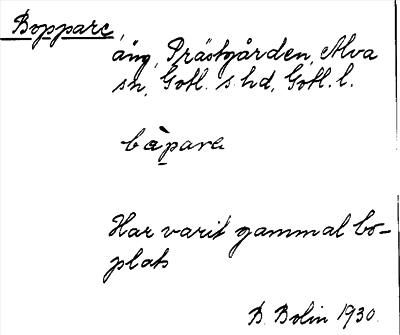 Boppare,
äng, Prästgården, Alva
sn, Gotl. s. hd, Gotl. l.
bàpare
Har varit gammal bo-
plats
B. Bolin 1930.